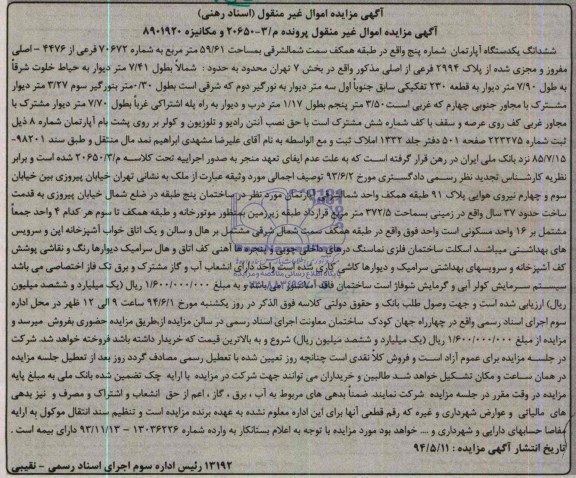 آگهی مزایده اموال غیر منقول (اسناد رهنی)
آگهی مزایده اموال غیر منقول پرونده م/۳-۲۰۶۵۰ و مکانیزه ۸۹۰۱۹۲۰
ششدانگ یکدستگاه آپارتمان شماره پنج واقع در طبقه همکف سمت شمالشرقی بمساحت ۵۹/۶۱ متر مربع به شماره ۷۰۶۷۲ فرعی از ۴۴۷۶ - اصلی
مفروز و مجزی شده از پلاک ۲۹۹۴ فرعی از اصلی مذکور واقع در بخش ۷ تهران محدود به حدود : شمالاً بطول ۷/۴۱ متر دیوار به حیاط خلوت شرقاً
به طول ۷/۹۰ متر دیوار به قطعه ۲۳۰ تفکیکی سابق جنوباً اول سه متر دیوار به نورگیر دوم که شرقی است بطول ۰/۳۰ متر بنورگیر سوم ۳/۲۷ متر دیوار
مشترک با مجاور جنوبی چهارم که غربی است ۳/۵۰ متر پنجم بطول ۱/۱۷ متر درب و دیوار به راه پله اشتراکی غرباً بطول ۷/۷۰ متر دیوار مشترک با
مجاور غربی کف روی عرصه و سقف با کف شماره شش مشترک است با حق نصب آنتن رادیو و تلوزیون و کولر بر روی پشت بام آپارتمان شماره ۸ ذیل
ثبت شماره ۲۲۳۲۷۵ صفحه ۵۰۱ دفتر جلد ۱۳۳۲ املاک ثبت و مع الواسطه به نام آقای علیرضا مشهدی ابراهیم نمد مال منتقل و طبق سند ۹۸۲۰۱-
۸۵/۷/۱۵ نزد بانک ملی ایران در رهن قرار گرفته است که به علت عدم ایفای تعهد منجر به صدور اجراییه تحت کلاسه م/۲۰۶۵۰/۳ شده است و برابر
نظریه کارشناس تجدید نظر رسمی دادگستری مورخ ۹۳/۶/۲ توصیف اجمالی مورد وثیقه عبارت از ملک به نشانی تهران خیابان پیروزی بین خیابان
سوم و چهارم نیروی هوایی پلاک ۹۱ طبقه همکف واحد شمالشرقی آپارتمان مورد نظر در ساختمان پنج طبقه در ضلع شمال خیابان پیروزی به قدمت
ساخت حدود ۳۷ سال واقع در زمینی بمساحت ۳۷۲/۵ متر مربع قرارداد طبقه زیرزمین بمنظور موتورخانه و طبقه همکف تا سوم هر کدام ۴ واحد جمعاً
مشتمل بر ۱۶ واحد مسکونی است واحد فوق واقع در طبقه همکف سمت شمال شرقی مشتمل بر هال و سالن و یک اتاق خواب آشپزخانه اپن و سرویس
های بهداشتی میباشد اسکلت ساختمان فلزی نماسنگ درهای داخلی چوبی و پنجره ها آهنی کف اتاق و هال سرامیک دیوارها رنگ و نقاشی پوشش
کف آشپزخانه و سرویسهای بهداشتی سرامیک و دیوارها کاشی کاری شده است واحد دارای انشعاب آب و گاز مشترک و برق تک فاز اختصاصی می باشد
سیستم سرمایش کولر آبی و گرمایش شوفاژ است ساختمان فاقد آسانسور می باشد و به مبلغ ۱/۶۰۰/۰۰۰/۰۰۰ ریال (یک میلیارد و ششصد میلیون
ریال) ارزیابی شده است و جهت وصول طلب بانک و حقوق دولتی کلاسه فوق الذکر در روز یکشنبه مورخ ۹۴/۶/۱ ساعت ۹ الی ۱۲ ظهر در محل اداره
سوم اجرای اسناد رسمی واقع در چهارراه جهان کودک ساختمان معاونت اجرای اسناد رسمی در سالن مزایده ازطریق مزایده حضوری بفروش میرسد و
مزایده از مبلغ ۱/۶۰۰/۰۰۰/۰۰۰ ریال (یک میلیارد و ششصد میلیون ریال) شروع و به بالاترین قیمت که خریدار داشته باشد فروخته خواهد شد. شرکت
در جلسه مزایده برای عموم آزاد است و فروش کلاً نقدی است چنانچه روز تعیین شده با تعطیل رسمی مصادف گردد روز بعد از تعطیل جلسه مزایده
در همان ساعت و مکان تشکیل خواهد شد طالبین و خریداران می توانند جهت شرکت در مزایده با ارایه چک تضمین شده بانک ملی به مبلغ پایه
مزایده در وقت مقرر در جلسه مزایده شرکت نمایند. ضمناً بدهی های مربوط به آب ، برق ، گاز ، اعم از حق انشعاب و اشتراک و مصرف و نیز بدهی
های مالیاتی و عوارض شهرداری و غیره که رقم قطعی آنها برای این اداره معلوم نشده به عهده برنده مزایده است و تنظیم سند انتقال موکول به ارایه
مفاصا حسابهای دارایی و شهرداری و .... خواهد بود مورد مزایده با توجه به اعلام بستانکار به وارده شماره ۱۳۰۳۶۲۲۶ – ۹۳/۱۱/۱۳ دارای بیمه است .
تاریخ انتشار آگهی مزایده : ۹۴/۵/۱۱
۱۳۱۹۲ رئیس اداره سوم اجرای اسناد رسمی - نقیبی